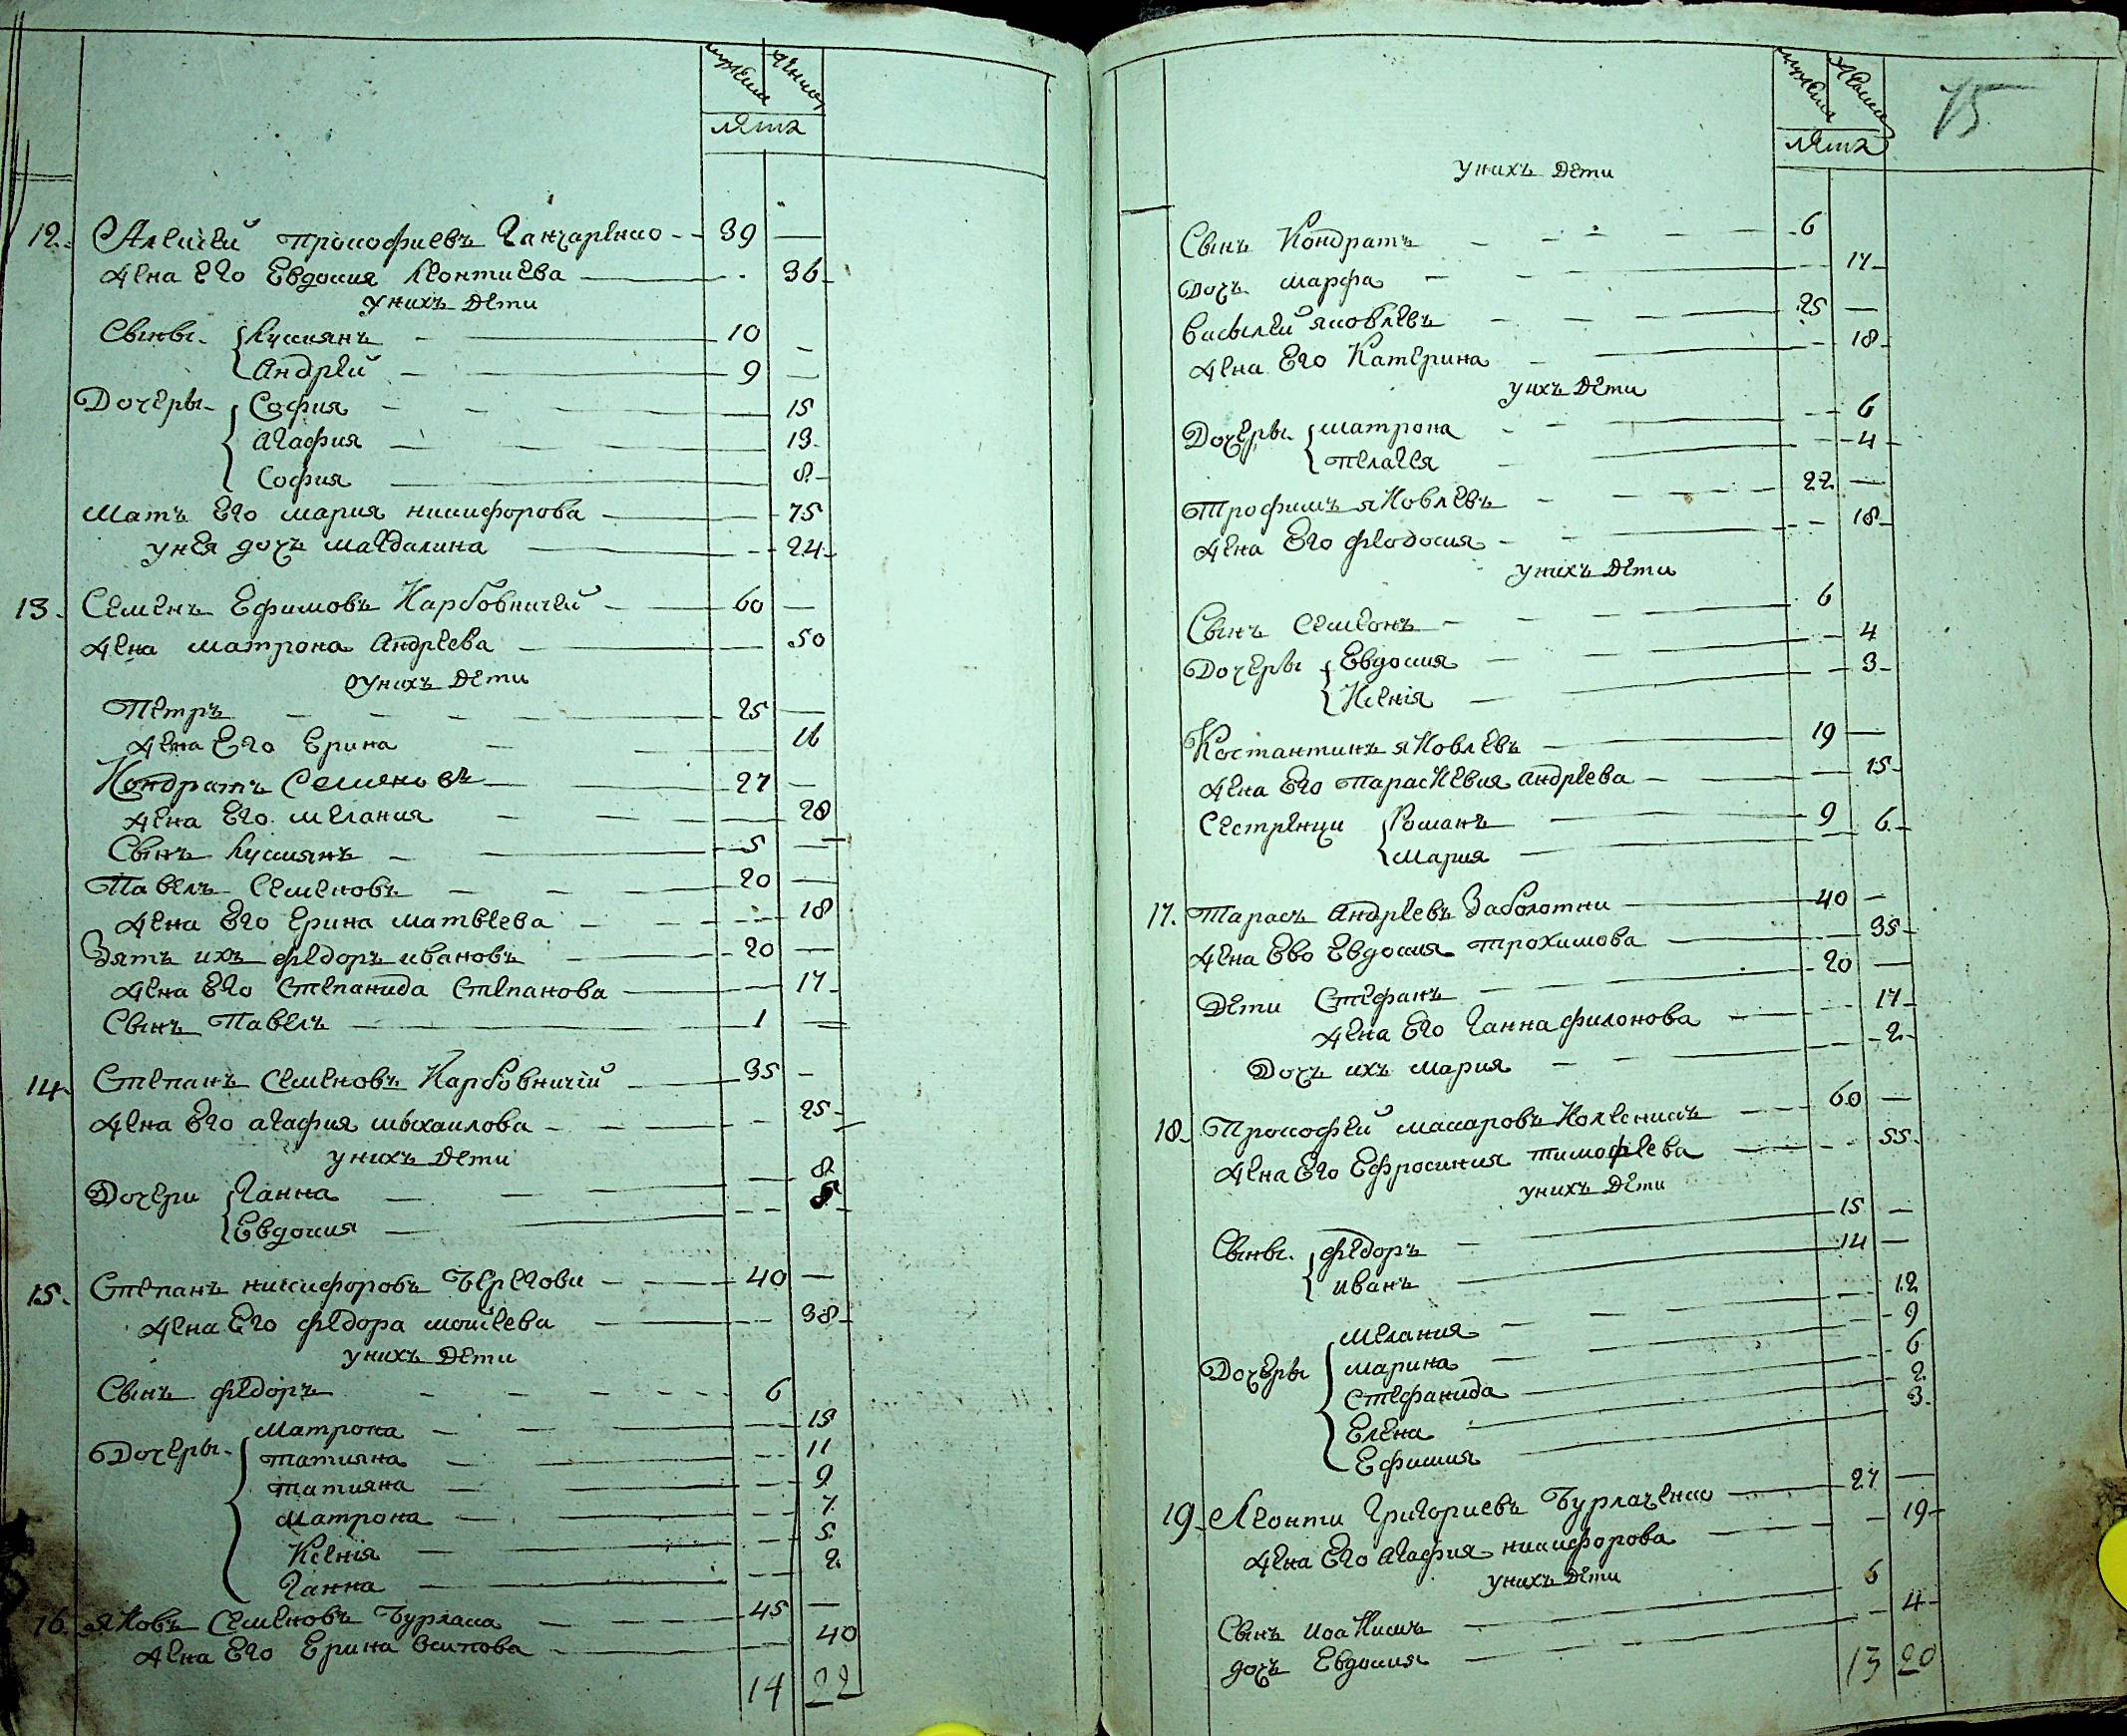 мужеск женск
лѣта
12. Алексѣй Прокофиевъ Ганчаренко 39
Жена Его Евдокия Леонтиева 36
у нихъ Дети
Сыны. Кузмянъ 10
Андрѣй 9
Дочеры София 15
Агафия 13
София 8
Мать Его мария никифорова 75
у нея дочъ магдалина 24
13. Семенъ Ефимовъ Карбовничей 60
Жена матрона Андреева 50
у нихъ Дети
Петръ 25
Жена Его Ерина 16
Кондратъ Семеновъ 27
Жена Его мелания 20
Сынъ Кузмянъ 5
Павелъ Семеновъ 20
Жена Его Ерина матвеева 18
Зять ихъ федоръ ивановъ 20
Жена Его Степанида Степанова 17
Сынъ Павелъ 1
14. Степанъ Семеновъ Карбовничiй 35
Жена Его агафия михаилова 25
у нихъ Дети
Дочери Ганна 8
Евдокия 5
15. Степанъ никифоровъ Берегови 40
Жена Его федора мойсеева 38
у нихъ Дети
Сынъ федоръ 6
Дочеры Матрона 15
татияна 11
татияна 9
матрона 7
Ксенiя 5
Ганна 2
16. яковъ Семеновъ Бурлака 45
Жена Его Ерина Осипова 40
14 22
мужеск женск
лѣта
75
у нихъ Дети
Сынъ Кондратъ 6
Дочъ марфа 17
Василей яковлевъ 25
Жена Его Катерина 18
у ихъ Дети
Дочеры матрона 6
пелагея 4
Трофимъ яковлевъ 22
Жена Его феодосия 18
у нихъ Дети
Сынъ Семеонъ 6
Дочеры Евдокия 4
Ксенiя 3
Костантинъ яковлевъ 19
Жена Его параскевия андреева 15
Сестренци Романъ 9
Мария 6
17. Тарасъ Андреевъ Заболотни 40
Жена Ево Евдокия трохимова 35
Дети Стефанъ 20
Жена Его Ганна филонова 17
Дочъ ихъ мария 2
18. Прокофей макаровъ Колесникъ 60
Жена Его Ефросиния тимофеева 55
у нихъ Дети
Сыны. федоръ 15
иванъ 14
Дочеры мелания 12
марина 9
Стефанида 6
Елена 2
Ефимия 3
19. Леонти Григориевъ Бурлаченко 27
Жена Его Агафия никифорова 19
у нихъ Дети
Сынъ иоакимъ 6
дочъ Евдокия 4
13 20